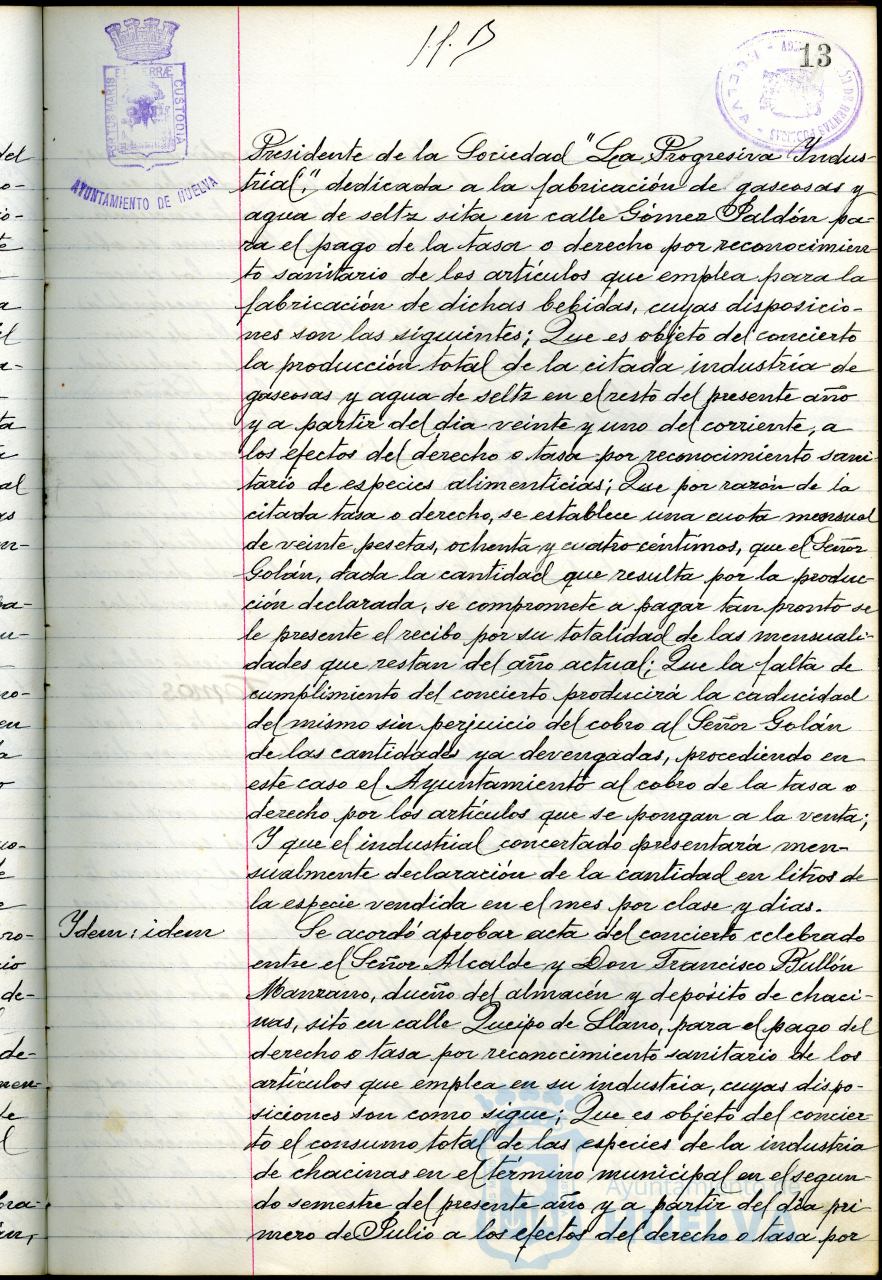 13
PORTUS MARIS ET TERRÆ CUSTODIA
AYUNTAMIENTO DE HUELVA
Presidente de la Sociedad "La Progresiva Indus-
trial", dedicada a la fabricación de gaseosas y
agua de seltz sita en calle Gómez Jaldón pa-
ra el pago de la tasa o derecho por reconocimien-
to sanitario de los artículos que emplea para la
fabricación de dichas bebidas, cuyas disposicio-
nes son las siguientes; Que es objeto del concierto
la producción total de la citada industria de
gaseosas y agua de seltz en el resto del presente año
y a partir del dia veinte y uno del corriente, a
los efectos del derecho o tasa por reconocimiento sani-
tario de especies alimenticias; Que por razón de la
citada tasa o derecho, se establece una cuota mensual
de veinte pesetas, ochenta y cuatro céntimos, que el Señor
Golán, dada la cantidad que resulta por la produc-
ción declarada, se compromete a pagar tan pronto se
le presente el recibo por su totalidad de las mensuali-
dades que restan del año actual; Que la falta de
cumplimiento del concierto producirá la caducidad
del mismo sin perjuicio del cobro al Señor Golán
de las cantidades ya devengadas, procediendo en
este caso el Ayuntamiento al cobro de la tasa o
derecho por los artículos que se pongan a la venta;
Y que el industrial concertado presentará men-
sualmente declaración de la cantidad en litros de
la especie vendida en el mes por clase y dias.
Ydem: idem
Se acordó aprobar acta del concierto celebrado
entre el Señor Alcalde y Don Francisco Bullón
Manzano, dueño del almacén y depósito de chaci-
nas, sito en calle Queipo de Llano, para el pago del
derecho o tasa por reconocimiento sanitario de los
artículos que emplea en su industria, cuyas dispo-
siciones son como sigue; Que es objeto del concier-
to el consumo total de las especies de la industria
de chacinas en el término municipal en el segun-
do semestre del presente año y a partir del dia pri-
mero de Julio a los efectos del derecho o tasa por
Ayuntamiento de
HUELVA